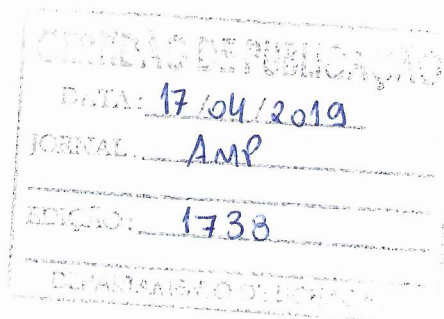 CERTIDÃO DE PUBLICAÇÃO
DATA: 17/04/2019
JORNAL AMP
EDIÇÃO: 1738